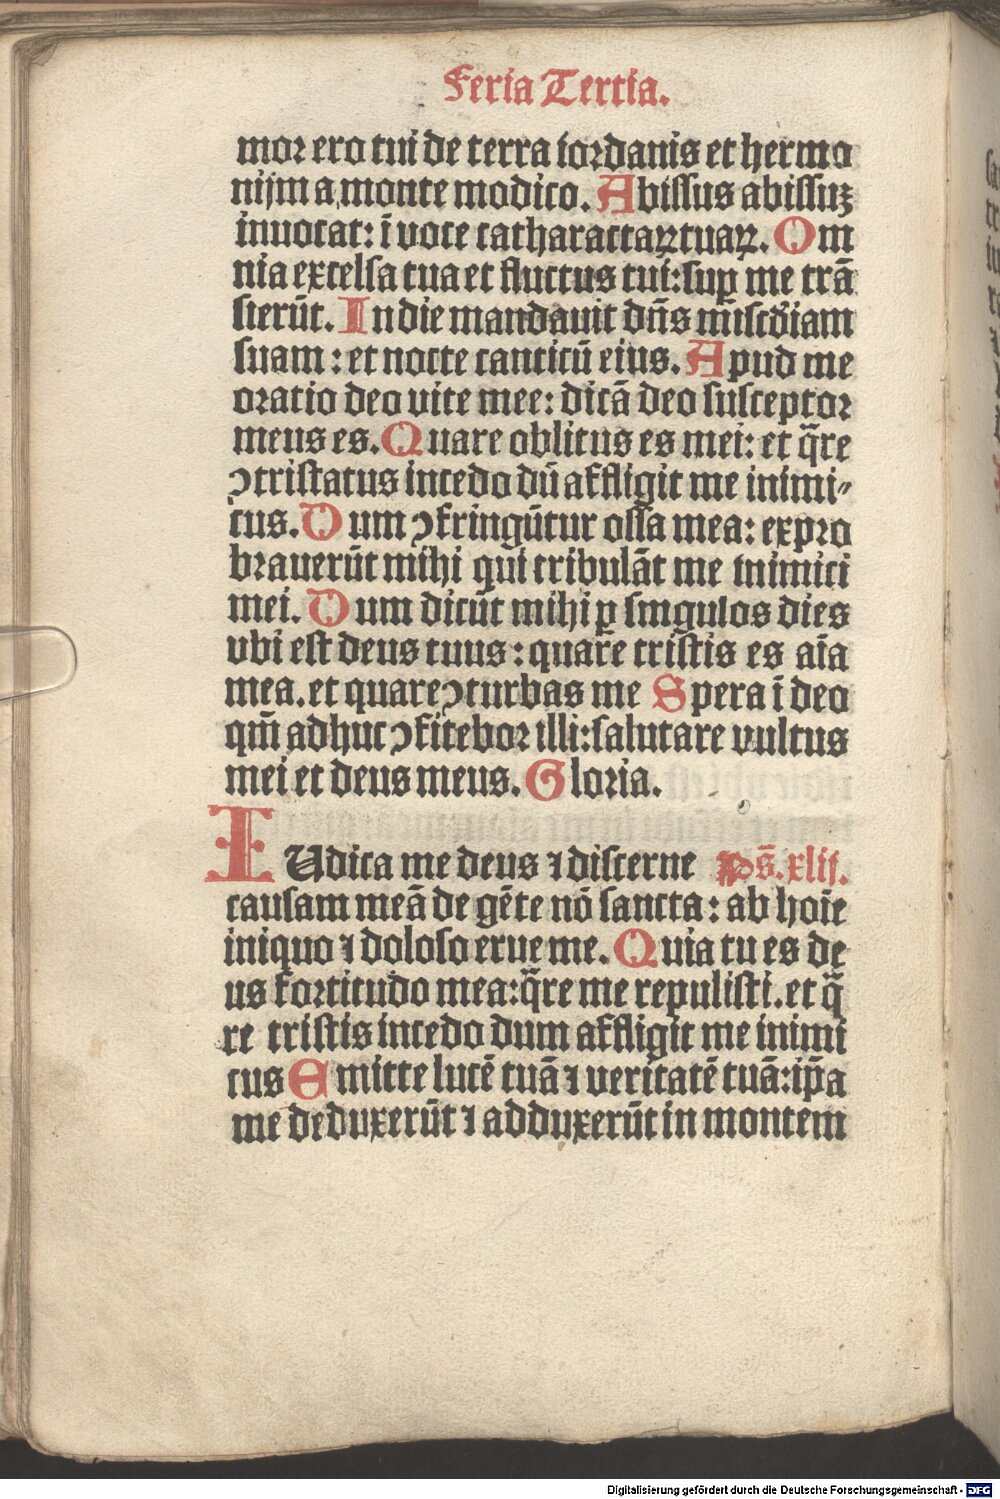 Feria Tertia.
mor ero tui de terra iordanis et hermo
nijm a monte modico. Abissus abissuꝫ
inuocat: ī voce catharactaꝝ tuaꝝ. Om
nia excelsa tua et fluctus tui: suꝑ me trā
sierūt. In die mandauit dn̄s m̄iscd̄iam
suam : et nocte canticū eius. Apud me
oratio deo vite mee: dicā deo susceptor
meus es. Quare oblitus es mei: et q̄re
ꝯtristatus incedo dū affligit me inimi⸗
cus. Dum ꝯfringūtur ossa mea: expro
brauerūt mihi qui tribulāt me inimici
mei. Dum dicūt mihi ꝑ singulos dies
vbi est deus tuus : quare tristis es aīa
mea. et quare ꝯturbas me Spera ī deo
qm̄ adhuc ꝯfitebor illi: salutare vultus
mei et deus meus. Gloria.
IUdica me deus ⁊ discerne Ps̄. xlij.
causam meā de gēte nō sancta : ab hoīe
iniquo ⁊ doloso erue me. Quia tu es de
us fortitudo mea: q̄re me repulisti. et q̄
re tristis incedo dum affligit me inimi
cus Emitte lucē tuā ⁊ veritatē tuā: ip̄a
me deduxerūt ⁊ adduxerūt in montem
Digitalisierung gefördert durch die Deutsche Forschungsgemeinschaft - DFG